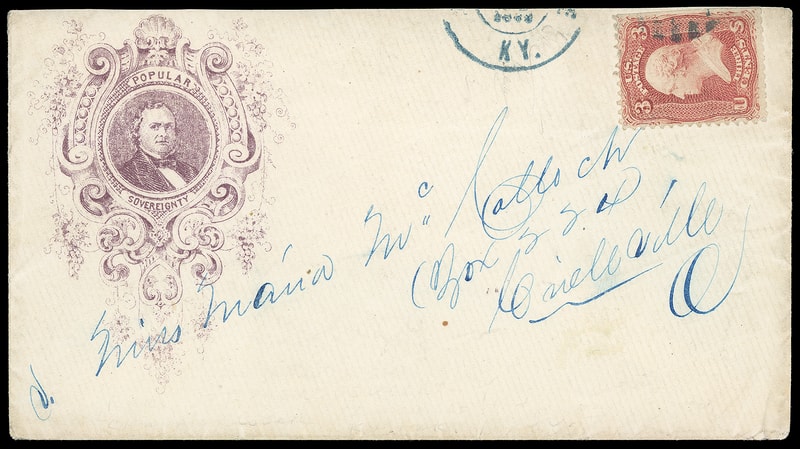 POPULAR
SOVEREIGNTY
KY.
U.S. POSTAGE
3 3
U S
Miss Maria Mc Culloch
Box 224
Circleville
O